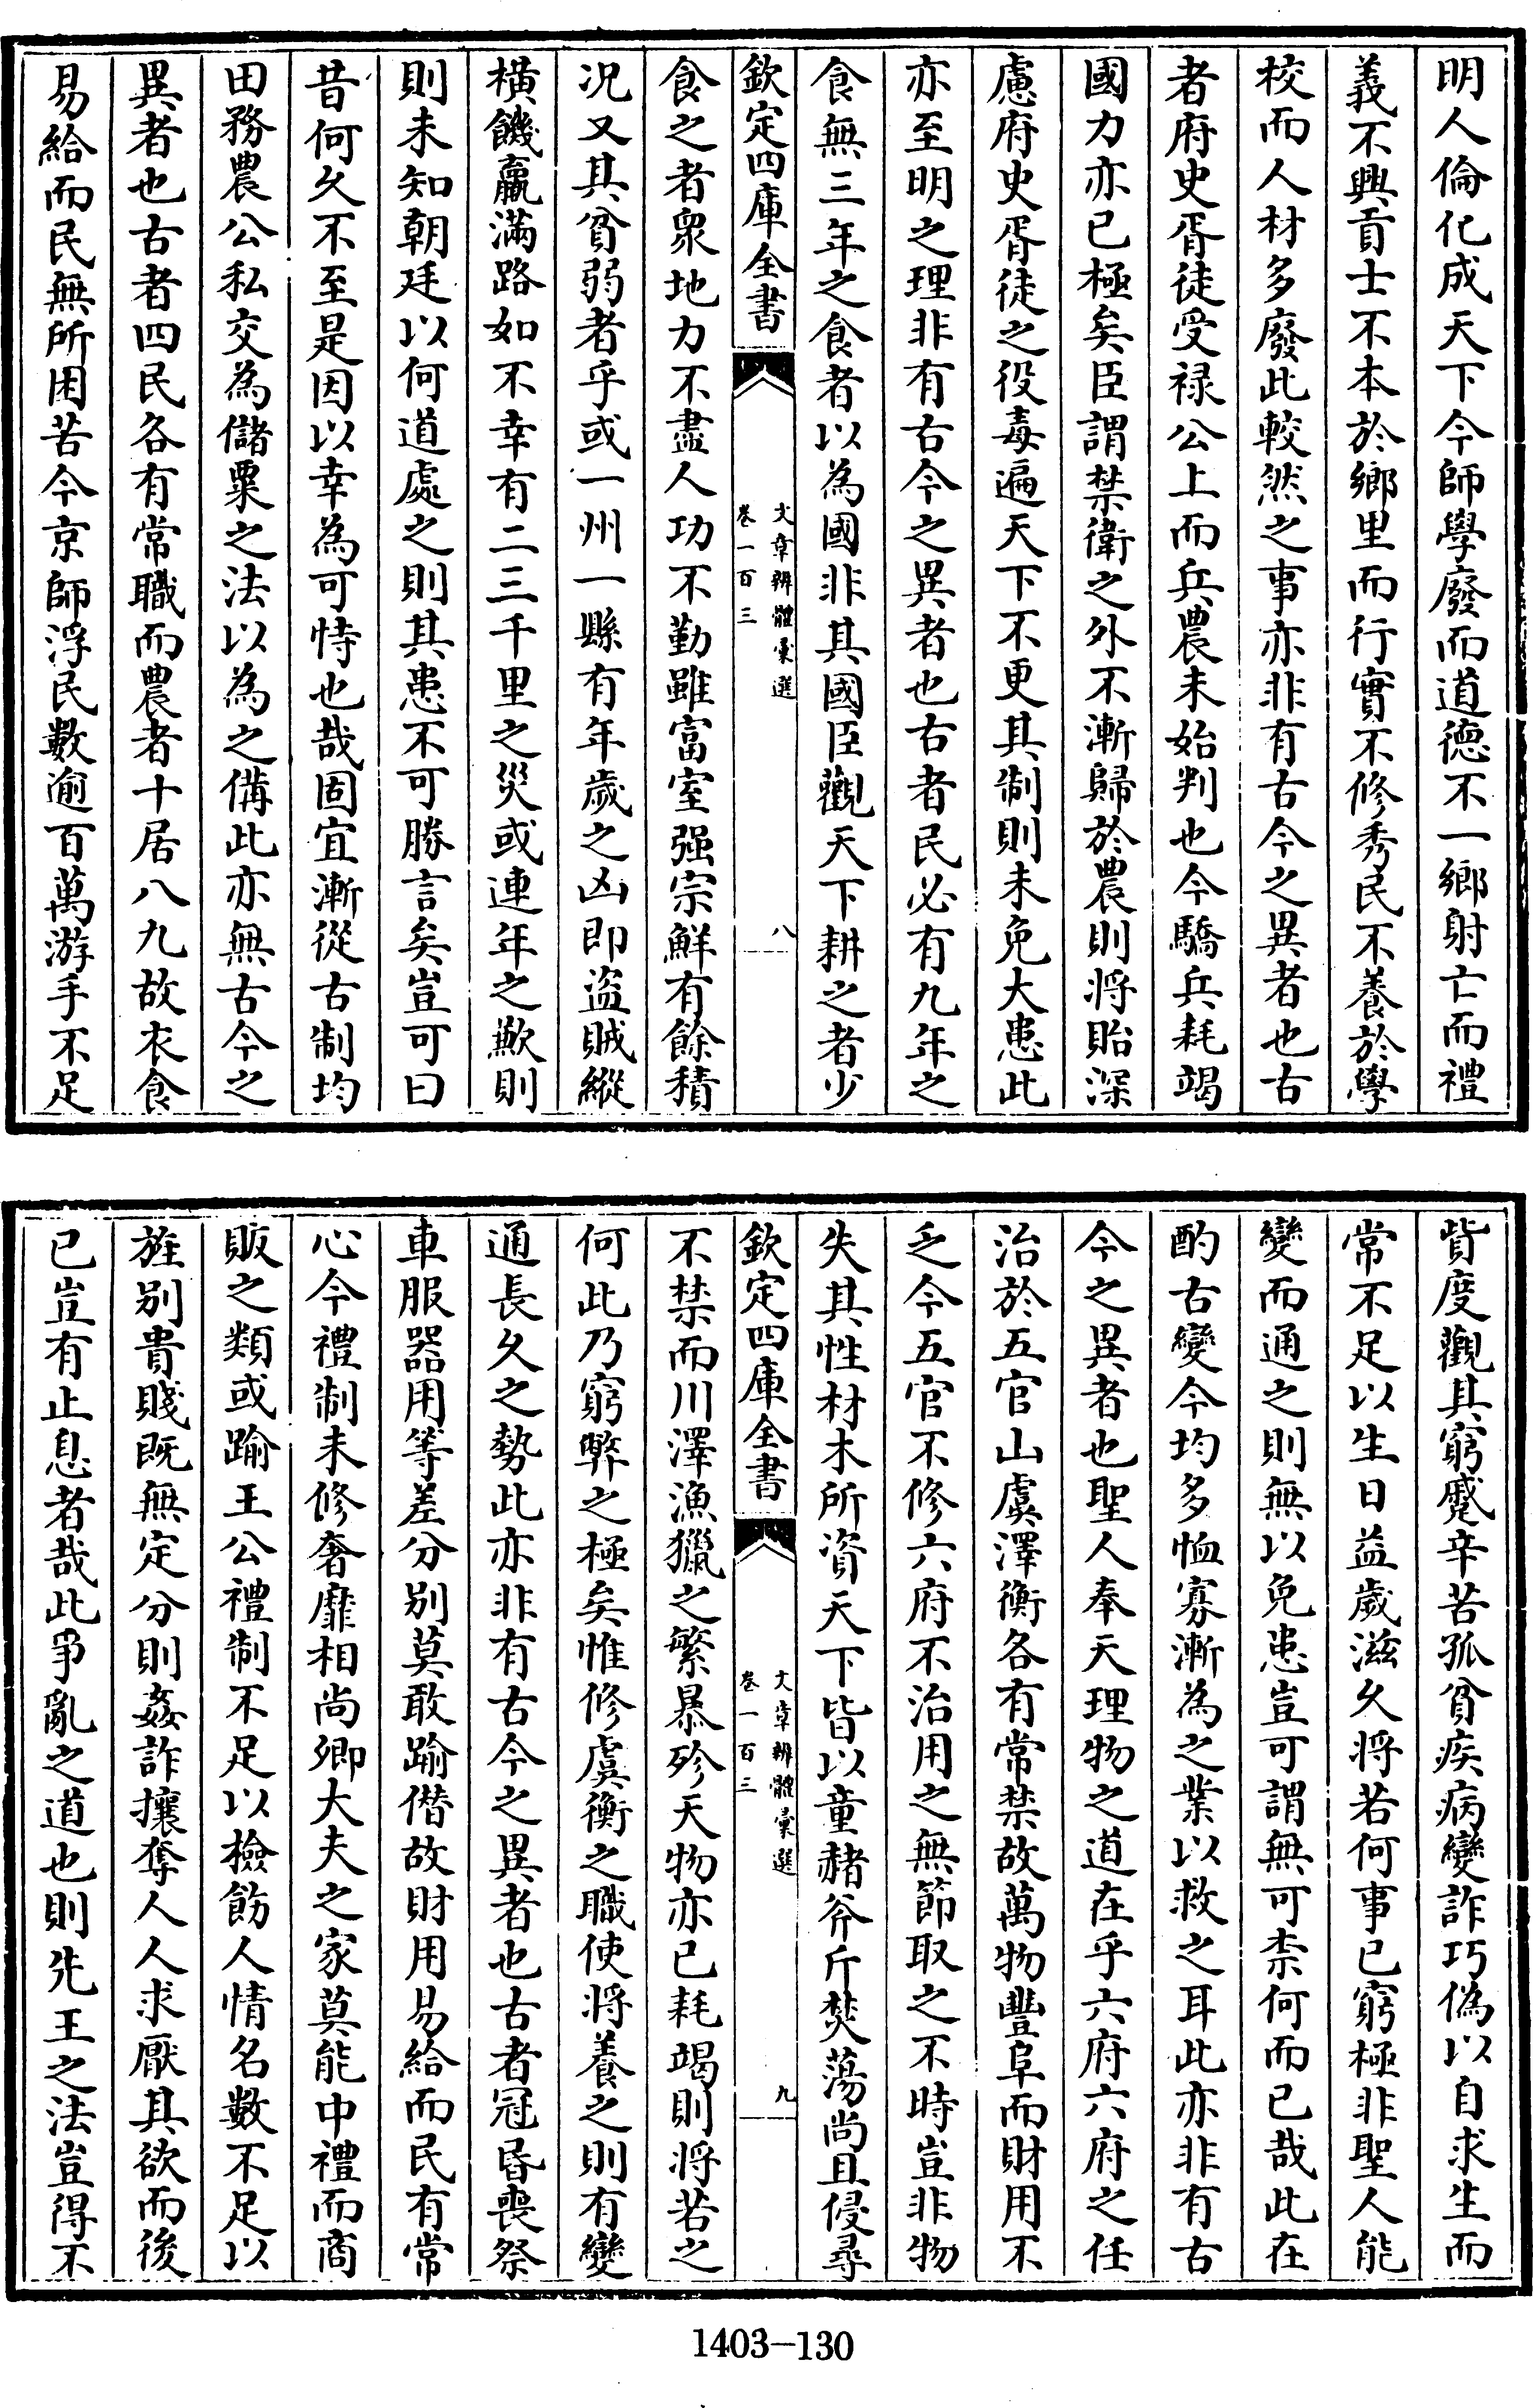 明人倫化成天下今師學廢而道德不一鄉射亡而禮
義不興貢士不本於鄉里而行實不修秀民不養於學
校而人材多廢此較然之事亦非有古今之異者也古
者府史胥徒受祿公上而兵農未始判也今驕兵耗竭
國力亦已極矣臣謂禁衛之外不漸歸於農則將貽深
慮府史胥徒之役毒遍天下不更其制則未免大患此
亦至明之理非有古今之異者也古者民必有九年之
食無三年之食者以為國非其國臣觀天下耕之者少
欽定四庫全書
文章辨體彙選
卷一百三
八
食之者衆地力不盡人功不勤雖富室强宗鮮有餘積
况又其貧弱者乎或一州一縣有年歲之凶即盜賊縱
橫饑羸滿路如不幸有二三千里之災或連年之歉則
則未知朝廷以何道處之則其患不可勝言矣豈可曰
昔何久不至是因以幸為可恃也哉固宜漸從古制均
田務農公私交為儲粟之法以為之備此亦無古今之
異者也古者四民各有常職而農者十居八九故衣食
易給而民無所困苦今京師浮民數逾百萬游手不足
貲度觀其窮蹙辛苦孤貧疾病變詐巧偽以自求生而
常不足以生日益歲滋久將若何事已窮極非聖人能
變而通之則無以免患豈可謂無可柰何而已哉此在
酌古變今均多恤寡漸為之業以救之耳此亦非有古
今之異者也聖人奉天理物之道在乎六府六府之任
治於五官山虞澤衡各有常禁故萬物豐阜而財用不
乏今五官不修六府不治用之無節取之不時豈非物
失其性材木所資天下皆以童赭斧斤焚蕩尚且侵尋
欽定四庫全書
文章辨體彙選
卷一百三
九
不禁而川澤漁獵之繁暴殄天物亦已耗竭則將若之
何此乃窮弊之極矣惟修虞衡之職使將養之則有變
通長久之勢此亦非有古今之異者也古者冠昏喪祭
車服器用等差分別莫敢踰僭故財用易給而民有常
心今禮制未修奢靡相尚卿大夫之家莫能中禮而商
販之類或踰王公禮制不足以檢飭人情名數不足以
旌別貴賤既無定分則姦詐攘奪人人求厭其欲而後
已豈有止息者哉此爭亂之道也則先王之法豈得不
1403-130